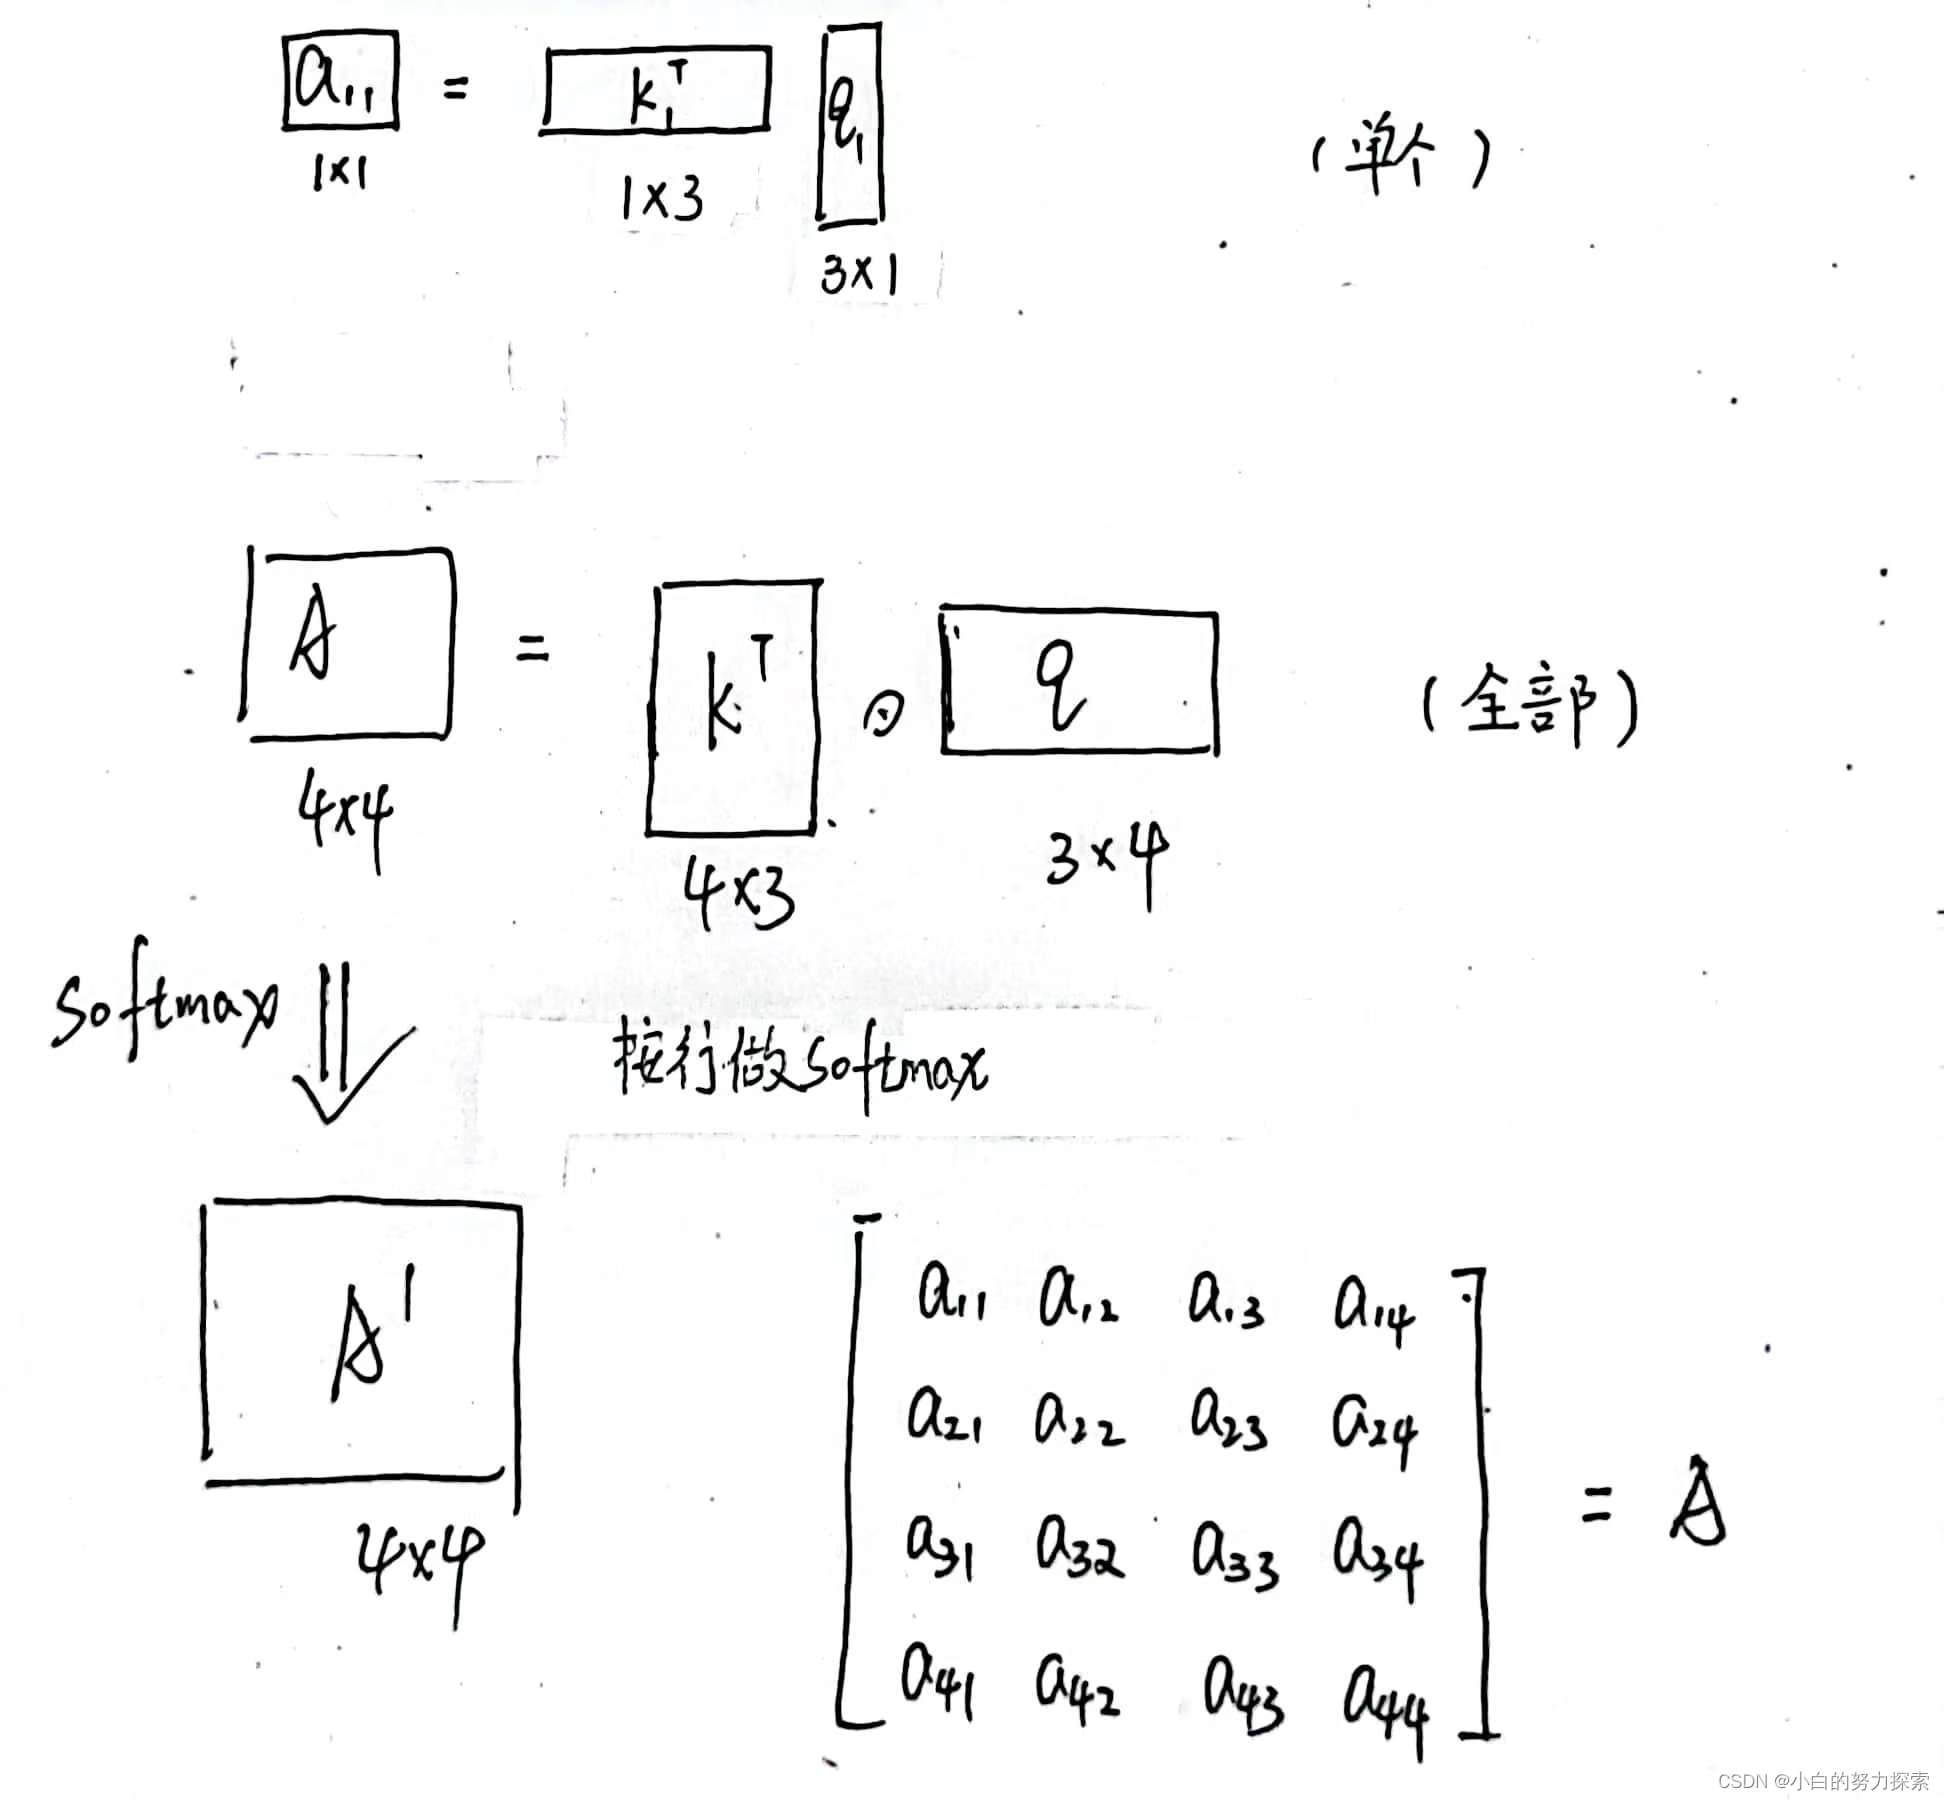 a₁₁ = k₁ᵀ q₁ (单个)
1×1 1×3 3×1
A = kᵀ ⊙ q (全部)
4×4 4×3 3×4
softmax 按行做softmax
A'
4×4
a₁₁ a₁₂ a₁₃ a₁₄
a₂₁ a₂₂ a₂₃ a₂₄
a₃₁ a₃₂ a₃₃ a₃₄
= A
a₄₁ a₄₂ a₄₃ a₄₄
CSDN @小白的努力探索